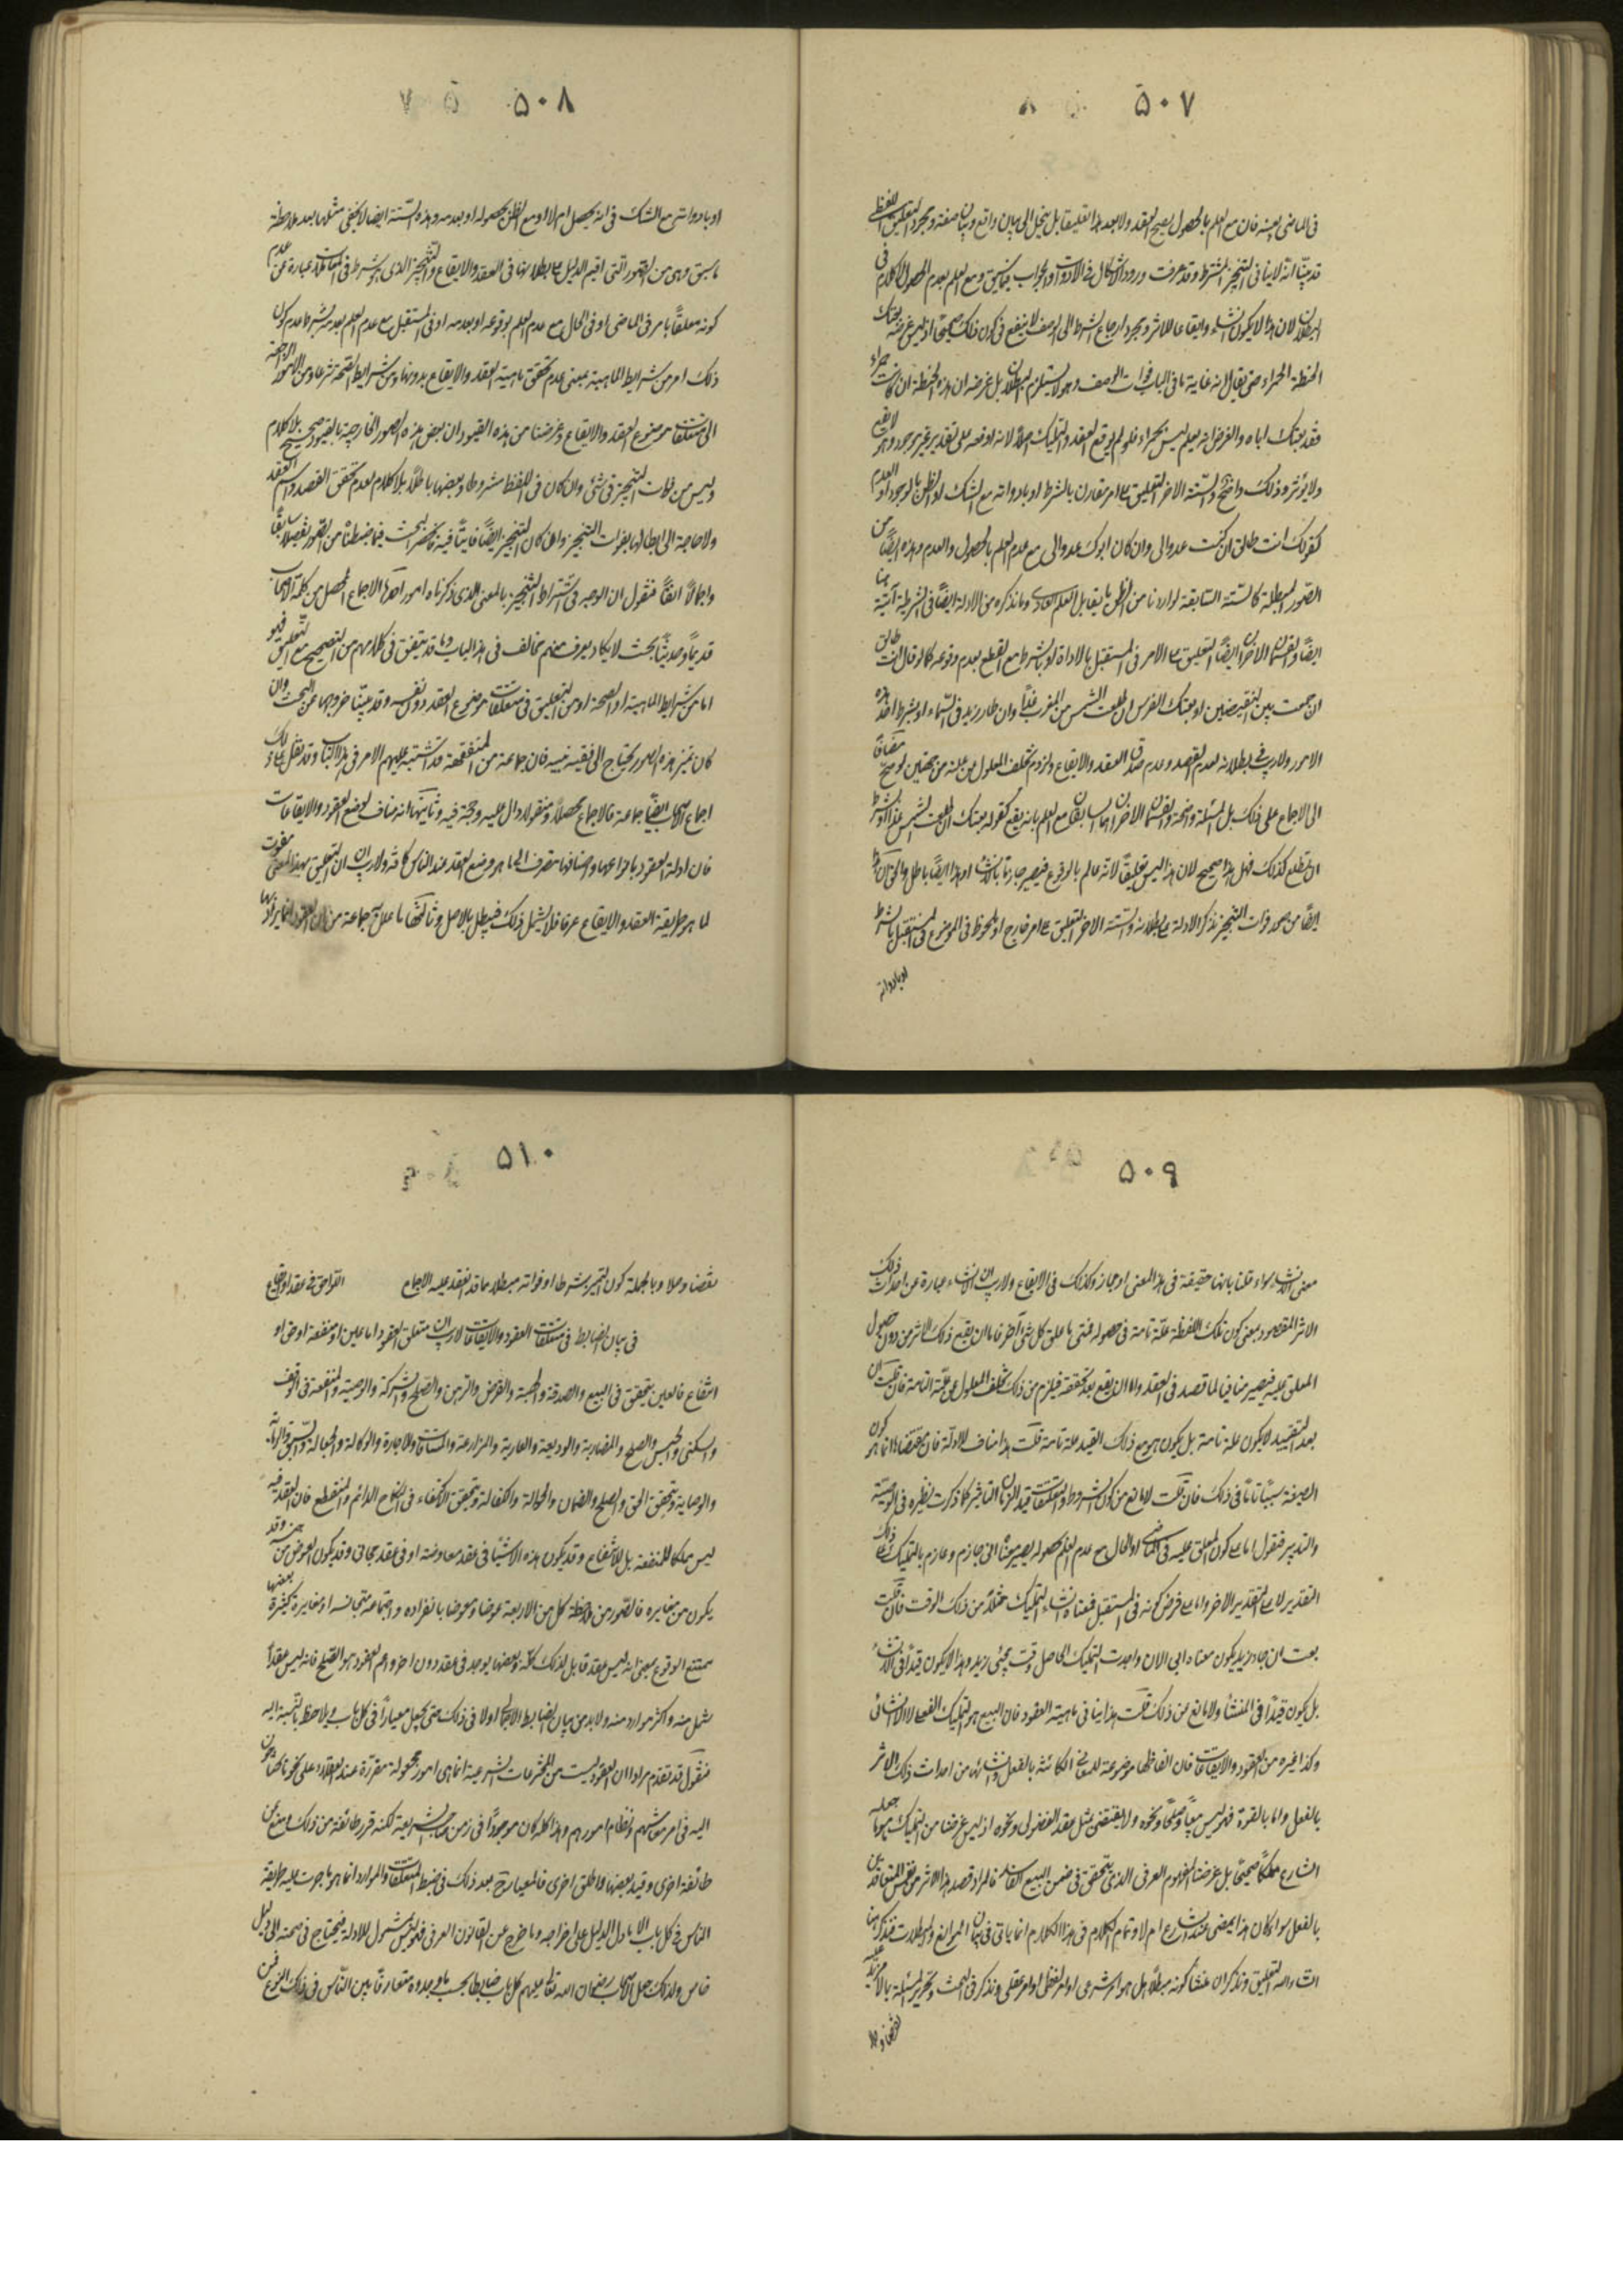 ۵۰۷
فى الماضى بعينه فان مع العلم بالحصول يصح العقد ولا بعد هذا تعليقا بل ينحل الى بيان واقع وبيان صفة ومجرد التعليق اللفظى
قد بينا انه لا ينافى التنجيز المشترط وقد عرفت ورود الاشكال فى الادوات والجواب ومع العلم بعدم الحصول لا كلام فى
البطلان لان هذا لا يكون انشاء وايقاعا للاثر ومجرد ارجاع الشرط الى الوصف لا ينفع فى كون ذلك صحيحا اذ ليس غرضه بعتك
الحنطة الحمراء حتى يقال انه غاية ما فى الباب فوات الوصف وهو لا يستلزم البطلان بل غرضه ان هذه الحنطة ان كانت حمراء
فقد بعتك اياه والفرض انه يعلم ليس بحمراء فلو لم يوقع العقد والتمليك اصلا لانه اوقعه على تقدير غير موجود وهو لا يقع
ولا يؤثر وذلك واضح والستة الاخر التعليق على امر مقارن بالشرط او بادواته مع الشك او الظن بالوجود او العدم
كقولك انت طالق ان كنت عدوا لى وان كان ابوك عدوا لى مع عدم العلم بالحصول والعدم وهذه ايضا من
الصور المبطلة كالستة السابقة لو اردنا من الظن ما يقابل العلم العادى وما نذكره من الادلة ايضا فى الشرطية آتية هنا
ايضا والقسمان الاخران ايضا التعليق على الامر فى المستقبل بالاداة او بالشرط مع القطع بعدم وقوعه كما لو قال انت طالق
ان جمعت بين النقيضين او بعتك الفرس ان طلعت الشمس من المغرب غدا وان طار زيد فى السماء او بشرط احد هذه
الامور ولا ريب فى بطلانه لعدم القصد وعدم صدق العقد والايقاع ولزوم تخلف المعلول عن علته من جهتين لو صح مضافا
الى الاجماع على ذلك بل المسئلة واضحة والقسمان الاخران هما السابقان مع العلم بانه يقع كقوله بعتك ان طلعت الشمس غدا او بشرط
ان تطلع كذلك فهل هذا صحيح لان هذا ليس تعليقا لانه عالم بالوقوع فيصير جازما بالانشاء او هذا ايضا باطل والحق ان هذا
ايضا من صور فوات التنجيز نذكر الادلة على بطلانه والستة الاخر التعليق على امر خارج او ملحوظ فى الموضوع فى المستقبل بالشرط
او بادواته
۵۰۸
او بادواته مع الشك فى انه يحصل ام لا او مع الظن بحصوله او بعدمه وهذه الستة ايضا لا يخفى مثلها بعد ملاحظة
ما سبق وهى من الصور التى اقيم الدليل على بطلانها فى العقد والايقاع والتنجيز الذى هو شرط فى المقامات عبارة عن عدم
كونه معلقا بامر فى الماضى او فى الحال مع عدم العلم بوقوعه او بعدمه او فى المستقبل مع عدم العلم بعدمه بشرط عدم كون
ذلك امر من شرايط الماهية بمعنى عدم تحقق ماهية العقد والايقاع بدونها ومن شرايط الصحة شرعا ومن الامور الراجعة
الى متعلقات موضوع العقد والايقاع وغرضنا من هذه القيود ان بعض هذه الصور الخارجية بالقيود صحيح بلا كلام
وليس من فوات التنجيز فى شئ وان كان فى اللفظ مشروطا وبعضها باطلا بلا كلام لعدم تحقق القصد واسم العقد
ولا حاجة الى ابطالها بفوات التنجيز وان كان التنجيز ايضا فايتا فيه فانحصر البحث فيما ضبطنا من الصور تفصيلا سابقا
واجمالا انفا فنقول ان الوجه فى اشتراط التنجيز بالمعنى الذى ذكرناه امور احدها الاجماع المحصل من كلمة الاصحاب
قديما وحديثا بحيث لا يكاد يعرف منهم مخالف فى هذا الباب وما قد يتفق فى كلامهم من التصحيح مع التعليق فهو
اما من شرايط الماهية او الصحة او من التعليق فى متعلقات موضوع العقد دون نفسه وقد بينا خروجهما عن البحث وان
كان تميز هذه الصور يحتاج الى فقيه نبيه فان جماعة من المتفقهة قد اشتبه عليهم الامر فى هذا الباب وقد نقل على ذلك
اجماع الاصحاب ايضا جماعة فالاجماع محصلا ومنقولا دال عليه وحجة فيه وثانيها انه مناف لوضع العقود والايقاعات
فان ادلة العقود بانواعها واصنافها منصرفة الى ما هو وضع العقد عند الناس كافة ولا ريب ان التعليق بهذا المعنى مفوت
لما هو طريقة العقد والايقاع عرفا فلا يشمله ذلك فيبطل بالاصل وثالثها ما علل به جماعة من ان العقود انما يراد بها
۵۰۹
معنى الانشاء سواء قلنا بانها حقيقة فى هذا المعنى او مجاز وكذلك فى الايقاع ولا ريب ان الانشاء عبارة عن احداث ذلك
الاثر المقصود بمعنى كون تلك اللفظة علة تامة فى حصوله فمتى ما علق كل شئ آخر فاما ان يقع ذلك الاثر من دون حصول
المعلق عليه فيصير منافيا لما قصد فى العقد واما ان يقع بعد تحققه فيلزم من ذلك تخلف المعلول عن علته التامة فان قلت ان
بعد التقييد لا يكون علة تامة بل يكون هو مع ذلك القيد علة تامة قلت هذا مناف للادلة فان مقتضاها انما هو كون
الصيغة سببا تاما فى ذلك فان قلت لا مانع من كون الشروط والمتعلقات قيد لزمان التاثير كما ذكرت نظيره فى الوصية
والتدبير فنقول اما على كون المعلق عليه فى الماضى او الحال مع عدم العلم بحصوله يصير معناه انى جازم وعازم بالتمليك على ذلك
التقدير لا على التقدير الاخر واما على فرض كونه فى المستقبل فمعناه انشاء التمليك مثلا من ذلك الوقت فان قلت
بعت ان جاء زيد يكون معناه انى الان واحدث التمليك الحاصل وقت مجئ زيد وهذا لا يكون قيدا فى الانشاء
بل يكون قيدا فى المنشأ ولا مانع من ذلك قلت هذا ينافى ماهية العقود فان البيع هو التمليك الفعلى لا الانشائى
وكذا غيره من العقود والايقاعات فان الفاظها موضوعة للمعانى الكائنة بالفعل وانشائها من احداث ذلك الاثر
بالفعل واما بالقوة فهو ليس بيعا وصلحا ونحوه ولا ينتقض بمثل عقد الفضولى ونحوه اذ ليس غرضنا من التمليك هو ما جعله
الشارع مملكا صحيحا بل غرضنا المفهوم العرفى الذى يتحقق فى ضمن البيع الفاسد فالمراد قصد هذا الاثر من نفس المتعاقدين
بالفعل سواء كان هذا يمضى عند الشارع ام لا وتمام الكلام فى هذا الكلام انما ياتى فى بيان الموانع والمبطلات فنذكر هنا
انشاء الله التعليق ونذكر ان منشأ كونه مبطلا هل هو امر شرعى او امر لفظى او امر عقلى ونذكر فى البحث وتحرير المسئلة بما لا مزيد عليه
نقضا وحلا
۵۱۰
نقضا وحلا وبالجملة كون التنجيز شرطا او فواته مبطلا مما قد انعقد عليه الاجماع
فى بيان الضابط فى متعلقات العقود والايقاعات لا ريب ان متعلق العقود اما عين او منفعة او حق او
انتفاع فالعين يتحقق فى البيع والصدقة والهبة والقرض والرهن والصلح والشركة والوصية والمنفعة فى الوقف
والسكنى والحبس والصلح والمضاربة والوديعة والعارية والمزارعة والمساقات والاجارة والوكالة والجعالة والسبق والرماية
والوصاية ويتحقق الحق والصلح والضمان والحوالة والكفالة ويتحقق الانتفاع فى النكاح الدائم والمنقطع فان العقد فيه
ليس مملكا للمنفعة بل للانتفاع وقد يكون هذه الاشياء فى عقد معاوضة او فى عقد مجانى وقد يكون العوض من جنسه وقد
يكون من مغايره فالصور من ملاحظة كل من الاربعة عوضا ومعوضا بانفراده واجتماعه بمجانسه او مغايره كثيرة بعضها
ممتنع الوقوع بمعنى انه ليس عقد قابل لذلك كله وبعضها يوجد فى عقد دون اخر واعم العقود هو الصلح فانه ليس عقدا
شمل منه واكثر موارد منه ولا بد من بيان الضابط الاجمالى اولا فى ذلك حتى يجعل معيارا فى كل باب ويلاحظ بالنسبة اليه
فنقول قد تقدم مرارا ان العقود ليست من المخترعات الشرعية انما هى امور مجعولة مقررة عند العقلاء على نحو ما يحتاجون
اليه فى امر معاشهم ونظام امورهم وهذا كله كان موجودا فى زمن صاحب الشريعة لكنه قرر طائفة من ذلك ومنع عن
طائفة اخرى وقيد بعضها واطلق اخرى فالمعيار ح بعد ذلك فى ضبط المتعلقات والموارد انما هو ما جرت عليه طريقة
الناس فى كل باب الا ما دل الدليل على اخراجه وما خرج عن القانون العرفى فهو ليس مشمول للادلة فيحتاج فى صحته الى دليل
خاص ولذلك جعل الاصحاب رضوان الله تعالى عليهم لكل باب ضابطا بحسب ما وجدوه متعارفا بين الناس فى ذلك النوع فمن